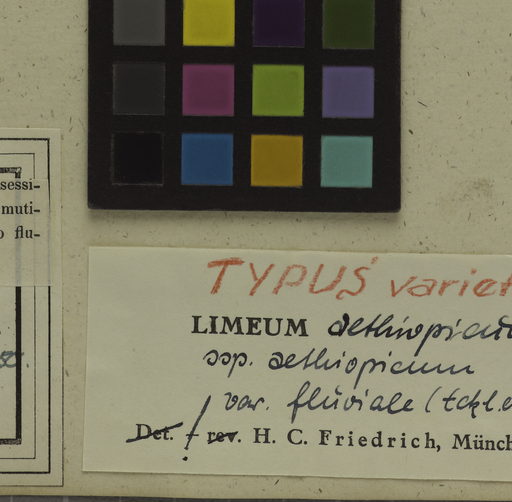 sessi-
muti-
o flu-
TYPUS variet
LIMEUM aethiopicu
ssp. aethiopicum
var. fluviale (Eckl. e
Det. ! rev. H. C. Friedrich, Münch